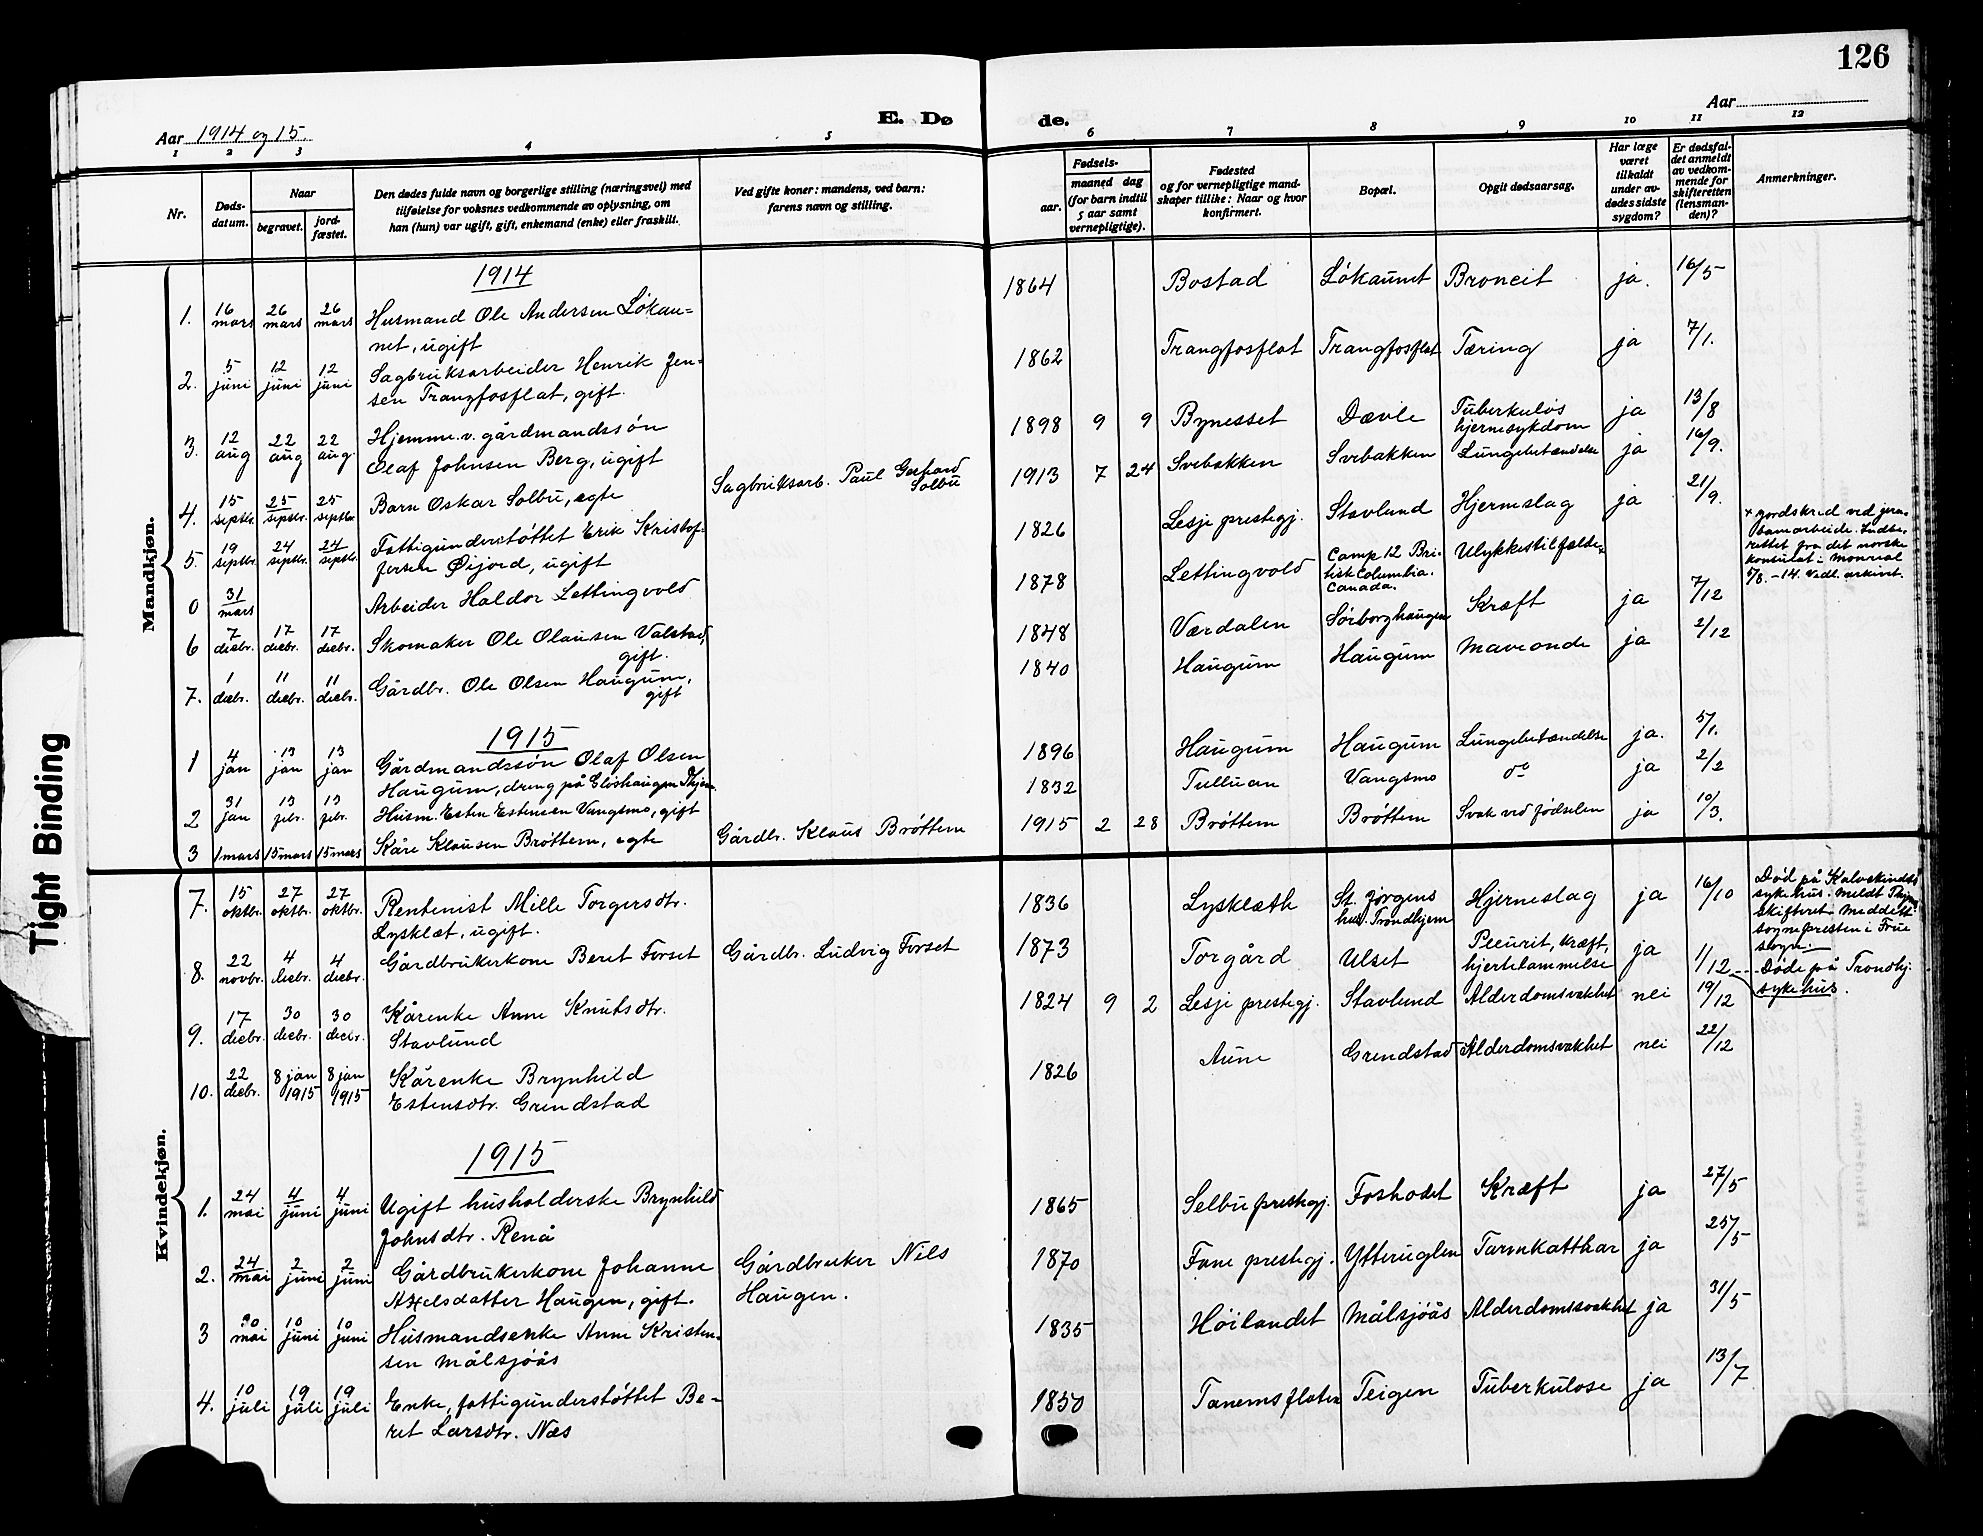 126
Aar 1914 og 15.
E. Døde.
Aar
1 2 3 4 5 6 7 8 9 10 11 12
Nr.
Døds-
datum.
Naar
begravet.
jord-
fæstet.
Den dødes fulde navn og borgerlige stilling (næringsvei) med
tilføielse for voksnes vedkommende av oplysning, om
han (hun) var ugift, gift, enkemand (enke) eller fraskilt.
Ved gifte koner: mandens, ved barn:
farens navn og stilling.
Fødsels-
aar.
maaned dag
(for barn indtil
5 aar samt
vernepligtige).
Fødested
og for vernepligtige mand-
skaper tillike: Naar og hvor
konfirmert.
Bopæl.
Opgit dødsaarsag.
Har læge
været
tilkaldt
under av-
dødes sidste
sygdom?
Er dødsfal-
det anmeldt
av vedkom-
mende for
skifteretten
(lensman-
den)?
Anmerkninger.
Mandkjøn.
1914
1. 16 mars 26 mars 26 mars Husmand Ole Andersen Løkau-
net, ugift 1864 Bostad Løkaunet Broncit ja. 16/5
2. 5 juni 12 juni 12 juni Sagbruksarbeider Henrik Jen-
sen Trangfosflat, gift. 1862 Trangfosflat Trangfosflat Tæring ja 7/1.
3. 12 aug 22 aug 22 aug Hjemme.v. gårdmandssøn
Olaf Johnsen Berg, ugift 1898 9 9 Bynesset Dævle Tuberkuløs
hjernesykdom ja 13/8
4. 15 septbr. 25 septbr. 25 septbr. Barn Oskar Solbu, egte Sagbruksarb. Paul Gerhard
Solbu 1913 7 24 Svebakken Svebakken Lungebetændelse ja 16/9.
5. 19 septbr. 24 septbr. 24 septbr. Fattigunderstøttet Erik Kristof-
fersen Øijord, ugift 1826 Lesje prestegj. Stavlund Hjerneslag ja 21/9.
0 31 mars Arbeider Haldor Lettingvold 1878 Lettingvold Camp 12 Bri-
tisk Columbia.
Canada. Ulykkestilfælde x
x jordskred ved jern-
banearbeide. Indbe-
rettet fra det norske
konsulat i Monreal
5/8.-14. Vedl. arkivet.
6 7 decbr. 17 decbr. 17 decbr. Skomaker Ole Olausen Valstad,
gift. 1848 Værdalen Sørborghaugen Kræft ja 7/12
7. 1 decbr. 11 decbr. 11 decbr. Gårdbr. Ole Olsen Haugum,
gift 1840 Haugum Haugum Maveonde ja 2/12
1915
1 4 jan 13 jan 13 jan Gårdmandssøn Olaf Olsen
Haugum, dreng på Elishaugen 1896 Haugum Haugum Lungebetændelse ja. 5/1.
2 31 jan 13 febr. 13 febr. Husm. Esten Estensen Vangsmo, gift 1832 Tulluan Vangsmo do ja 2/2
3 1 mars 15 mars 15 mars Kåre Klausen Brøttem, egte Gårdbr. Klaus Brøttem 1915 2 28 Brøttem Brøttem Svak ved fødselen ja 10/3.
Kvindekjøn.
7. 15 oktbr. 27 oktbr. 27 oktbr. Rentenist Mille Torgersdtr.
Lysklæt, ugift. 1836 Lysklæth St. Jørgens
hus. Trondhjem Hjerneslag ja 16/10 Død på Kalvskindts
sykehus. Meldt
skifteret. Meddelt
sognepresten i Frue
sogn.
8. 22 novbr. 4 decbr. 4 decbr. Gårdbrukerkone Beret Forset Gårdbr. Ludvig Forset 1873 Torgård Ulset Pleurit, kræft,
hjertelammelse ja 1/12 Døde på Trondhj.
sykehus.
9. 17 decbr. 30 decbr. 30 decbr. Kårenke Anne Knutsdtr.
Stavlund 1824 9 2 Lesje prestegj. Stavlund Alderdomsvakhet nei 19/12
10. 22 decbr. 8 jan 1915 8 jan 1915 Kårenke Brynhild
Estensdtr. Grendstad 1826 Aune Grendstad Alderdomsvakhet nei 22/12
1915
1. 24 mai 4 juni 4 juni Ugift husholderske Brynhild
Johnsdtr. Renå 1865 Selbu prestegj. Foshodet Kræft ja 27/5
2. 24 mai 2 juni 2 juni Gårdbrukerkone Johanne
Axelsdatter Haugen, gift. Gårdbruker Nils
Haugen. 1870 Fane prestegj. Ytteruglen Tarmkatthar ja 25/5
3 30 mai 10 juni 10 juni Husmandsenke Anne Kristen-
sen Målsjøås 1835 Høilandet Målsjøås Alderdomssvakhet ja 31/5
4. 10 juli 19 juli 19 juli Enke, fattigunderstøttet Be-
ret Larsdtr. Næs 1850 Tanemsflaten Teigen Tuberkulose ja 13/7
Tight Binding